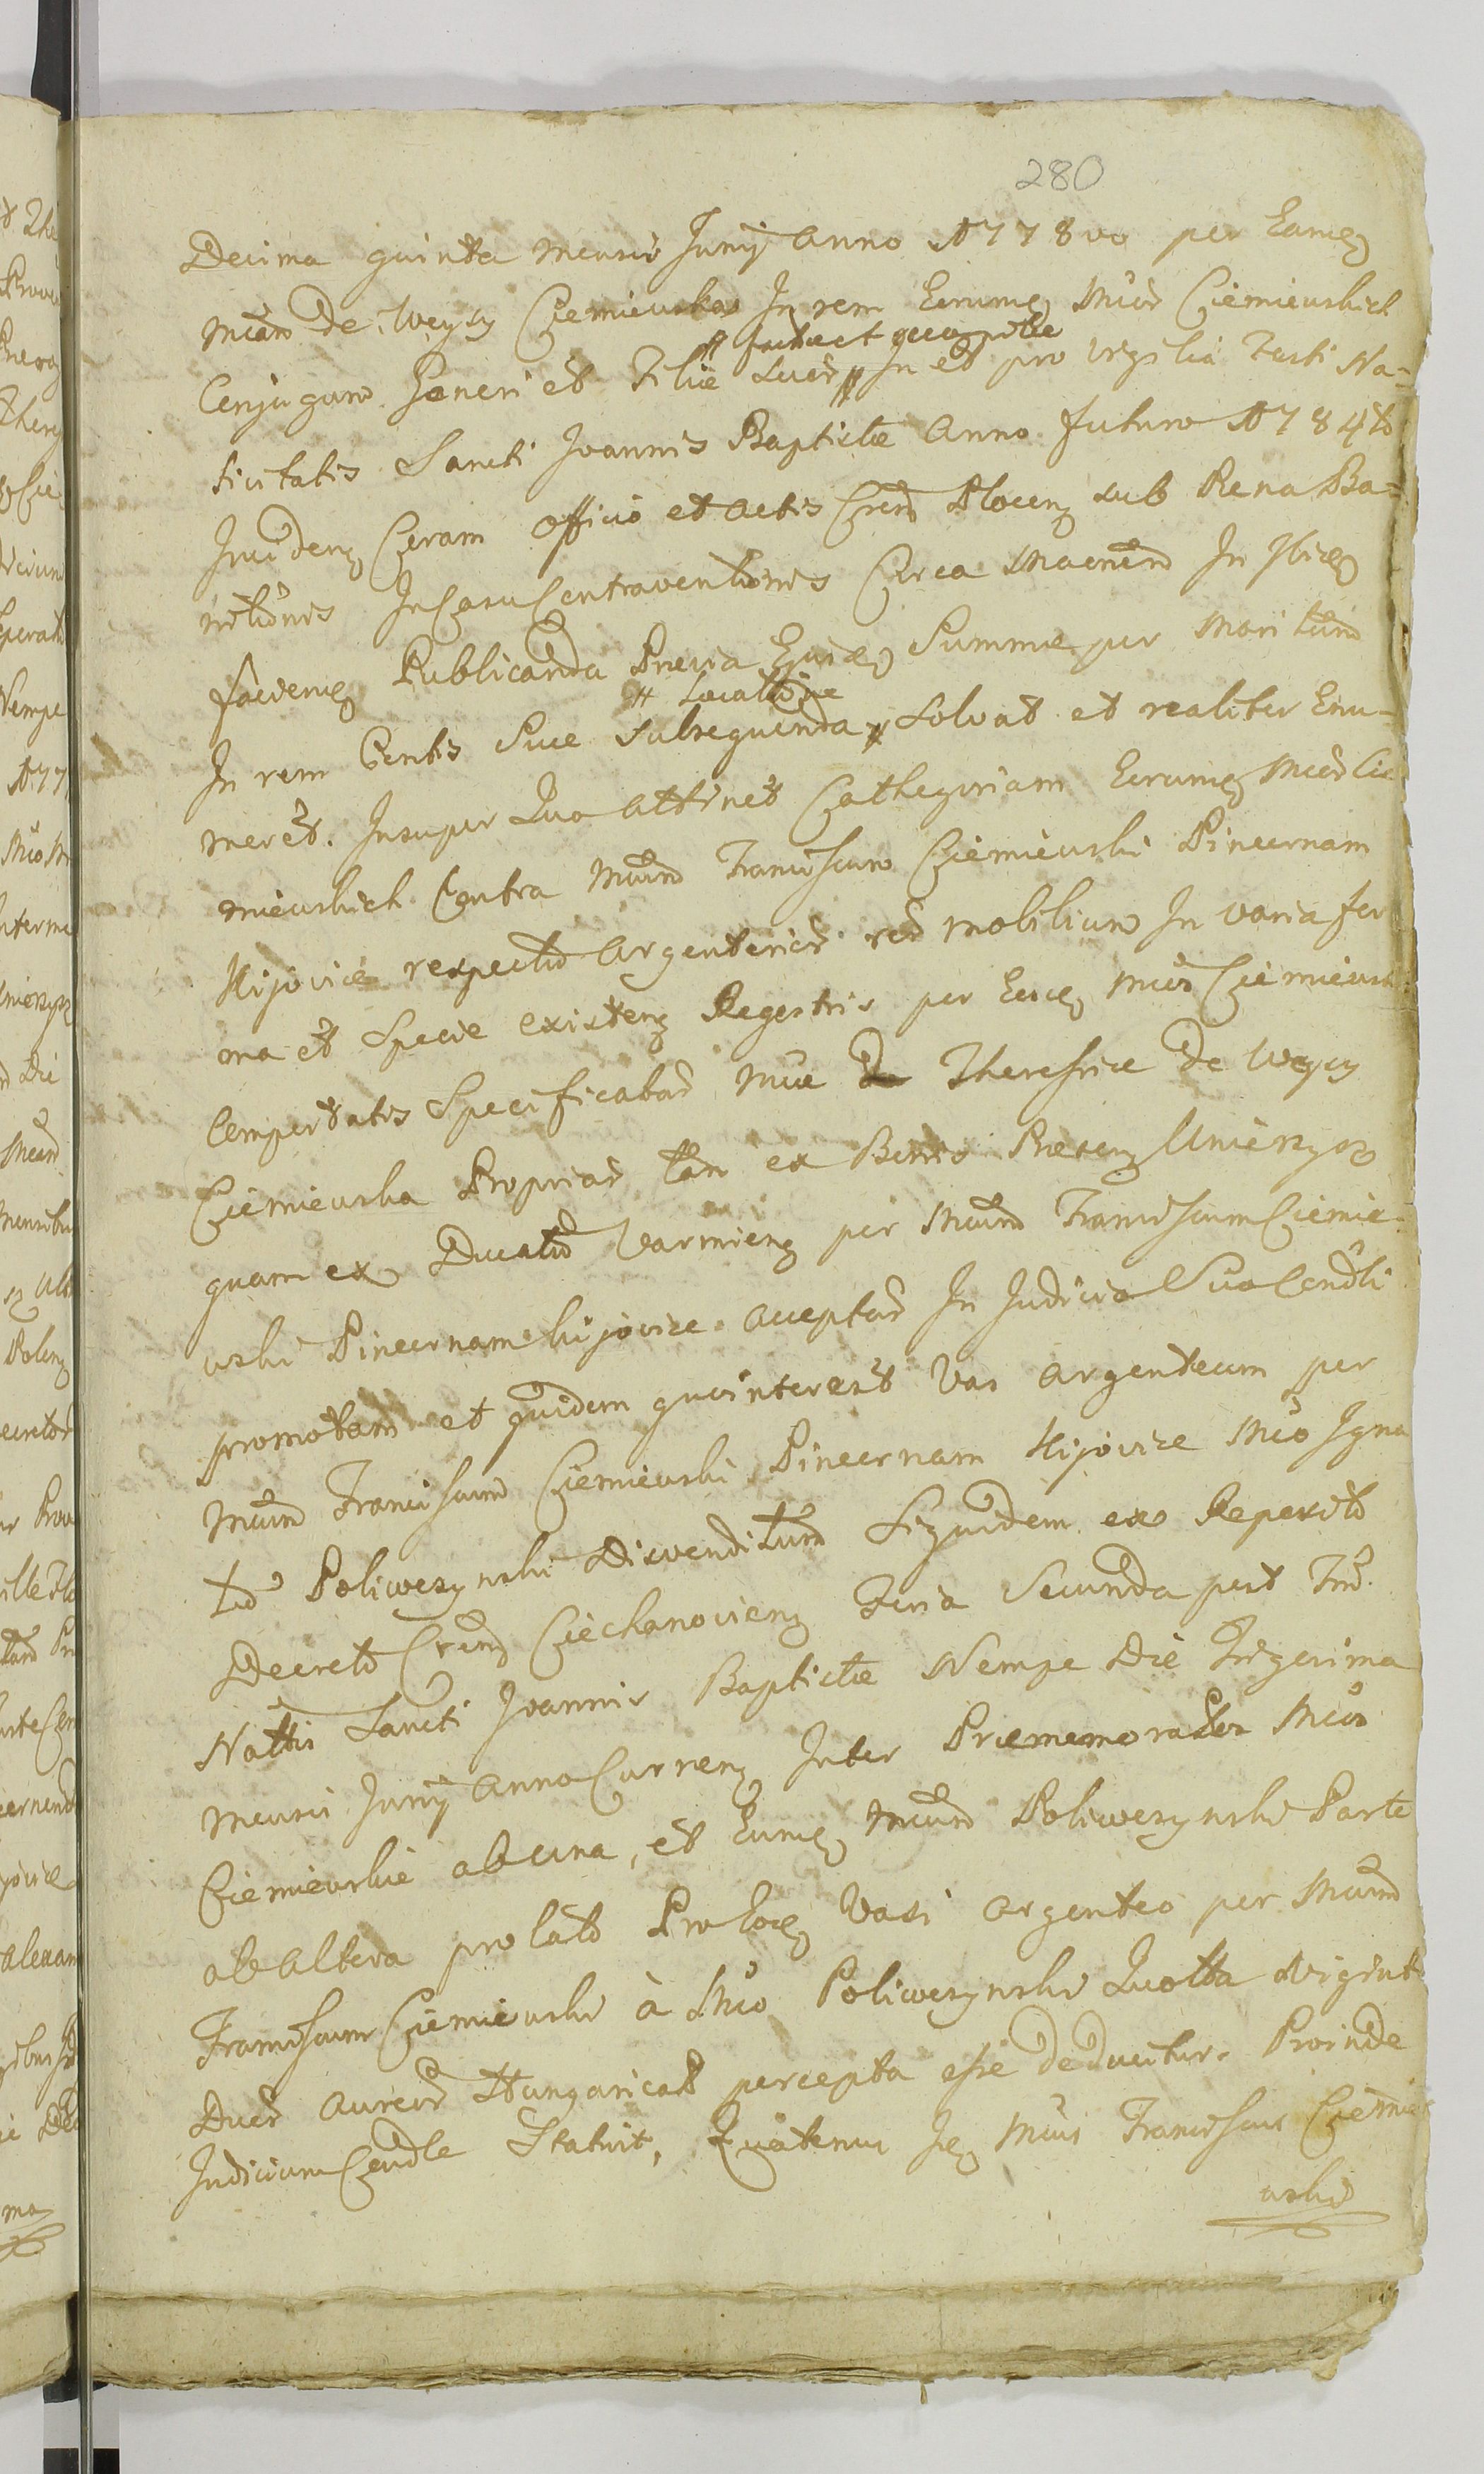 280
Decima quinta mensis Junij Anno 1778vo per Eamq
Mcam de Weysy Czemiewska In rem Eorumq Mcor Ciemiewskich
Conjugum Generi et Filiæ Suor # factæ et recognitæ In et pro Vigilia Festi Na-
tivitatis Sancti Joannis Baptistæ Anno futuro 1784to
Inciden Coram Officio et Actis Cren Plocen sub Pena Ba-
nitionis In Casu Contraventionis Circa
facien Publicanda Previa Ejusdq Summæ per Maritum
In rem Contis Suæ # Locatione subsequenda # Solvat et realiter Enu-
meret. Insuper Quo Attinet Cathegoriam Eorumq Mcor Cie
miewskich Contra Mcum Franciscum Ciemiewski Pincernam
Kijoviæ respectu Argenterior rer mobilium In varia for
ma et Specie existen Regestris per Eosdq Mcos Ciemiewsk
Comportatis Specificatar Mcæ Theresiæ de Weysy
Ciemiewska Propriar tam ex Bonis Presen Unierzyz
quam ex Ducatu Varmien per Mcum Franciscum Ciemie-
wski Pincernam Kijoviæ acceptar In Judicio Suo Condli
promotam et quidem quo interest Vas argenteum per
Mcum Franciscum Ciemiewski Pincernam Kijoviæ Mco Igna
tio Poliwczynski Disvenditum Siquidem ex Reposito
Decreto Cren Ciechanovien Feria Secunda post Fm
Nattis Sancti Joannis Baptistæ Nempe Die Trigesima
Mensis Junij Anno Curren Inter Præmemoratos Mcos
Ciemiewskie ab una, et Eumq Mcum Poliwczynski Parte
ab Altera prolato Pro Eodq Vasi argenteo per Mcum
Franciscum Ciemiewski à Mco Poliwczynski Quotta Viginti
Duor Aureor Hungaricalt percepta esse deducitur. Proinde
Judicium Condle Statuit, Quatenus Iq Mcus Franciscus Ciemie
wski